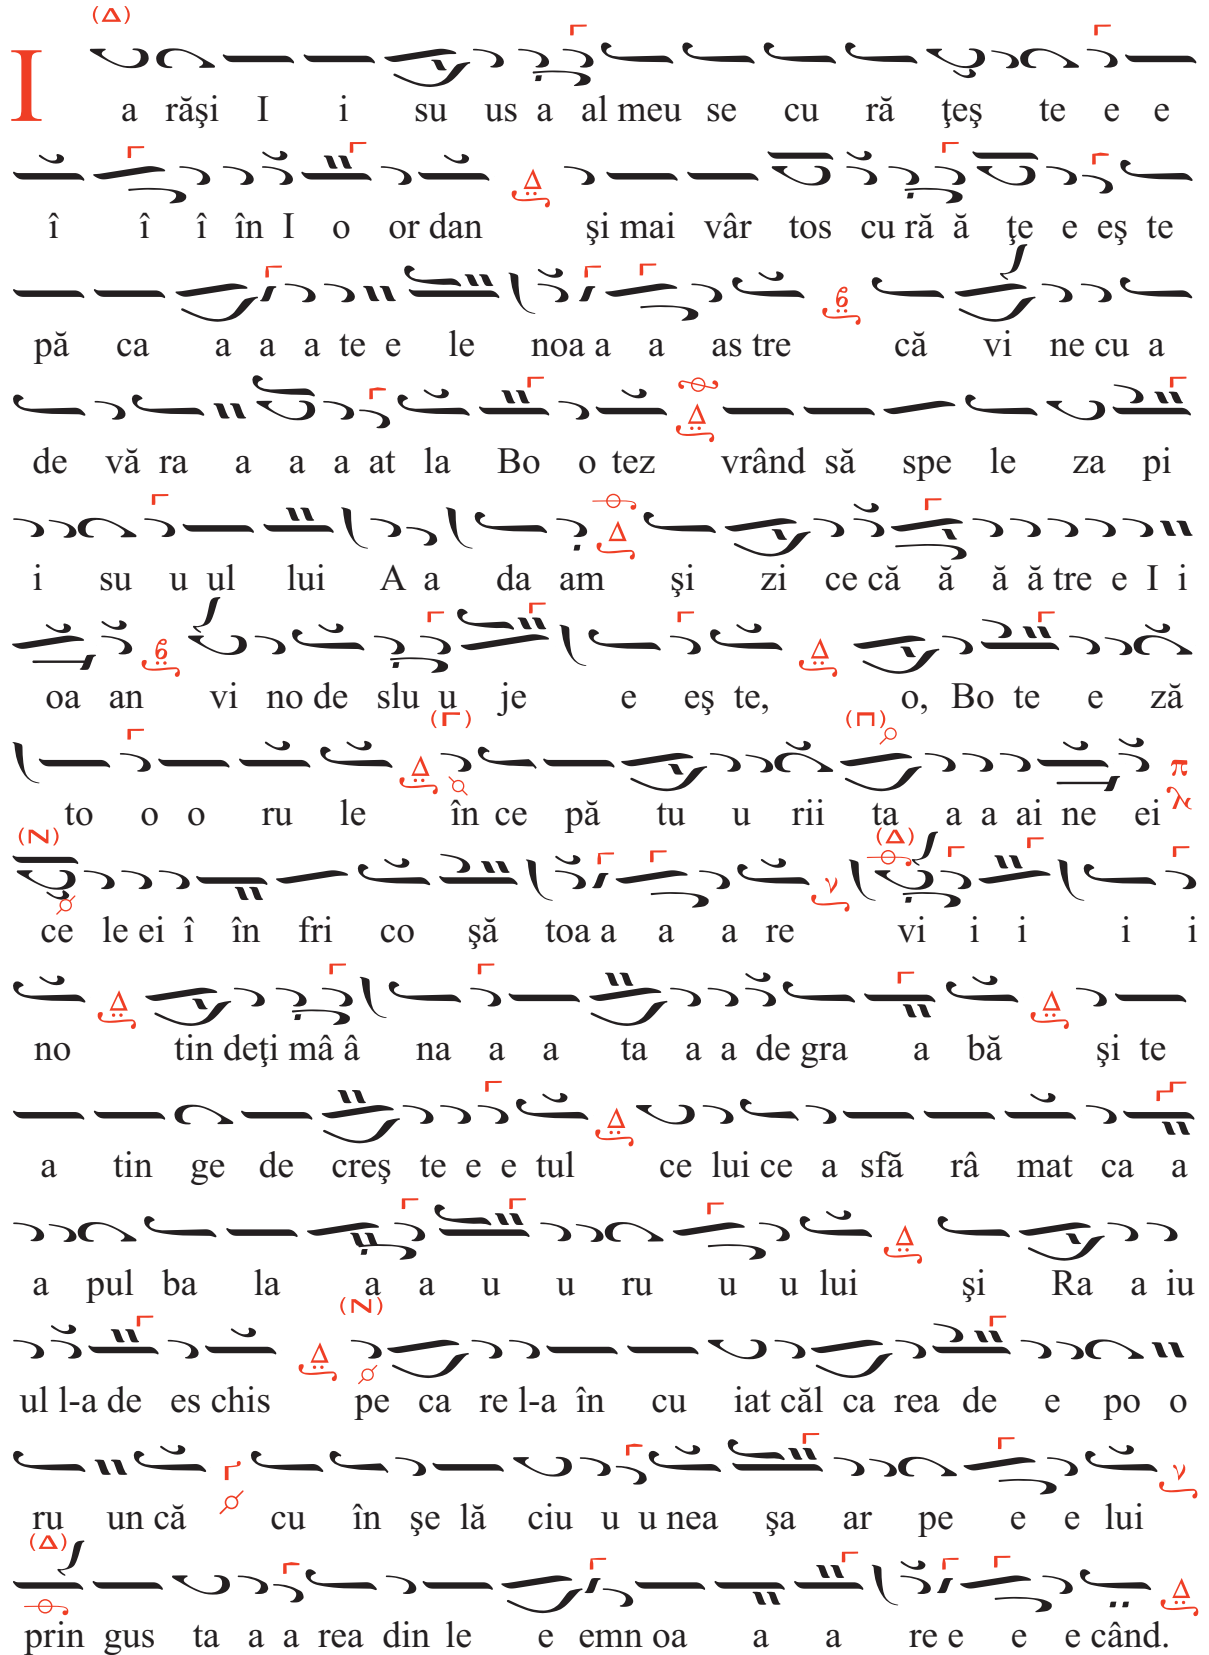 (Δ)
I a răşi I i su us a al meu se cu ră ţeş te e e
î î î în I o or dan şi mai vâr tos cu ră ă ţe e eş te
pă ca a a a te e le noa a a as tre că vi ne cu a
de vă ra a a a at la Bo o tez vrând să spe le za pi
i su u ul lui A a da am şi zi ce că ă ă ă tre e I i
oa an vi no de slu u je e eş te, o, Bo te e ză
(Γ) (Π)
to o o ru le în ce pă tu u rii ta a a ai ne ei
(N) (Δ)
ce le ei î în fri co şă toa a a a re vi i i i i
no tin deţi mâ â na a a ta a a de gra a bă şi te
a tin ge de creş te e e tul ce lui ce a sfă râ mat ca a
a pul ba la a a u u ru u u lui şi Ra a iu
(N)
ul l-a de es chis pe ca re l-a în cu iat căl ca rea de e po o
ru un că cu în şe lă ciu u u nea şa ar pe e e lui
(Δ)
prin gus ta a a rea din le e emn oa a a re e e e când.